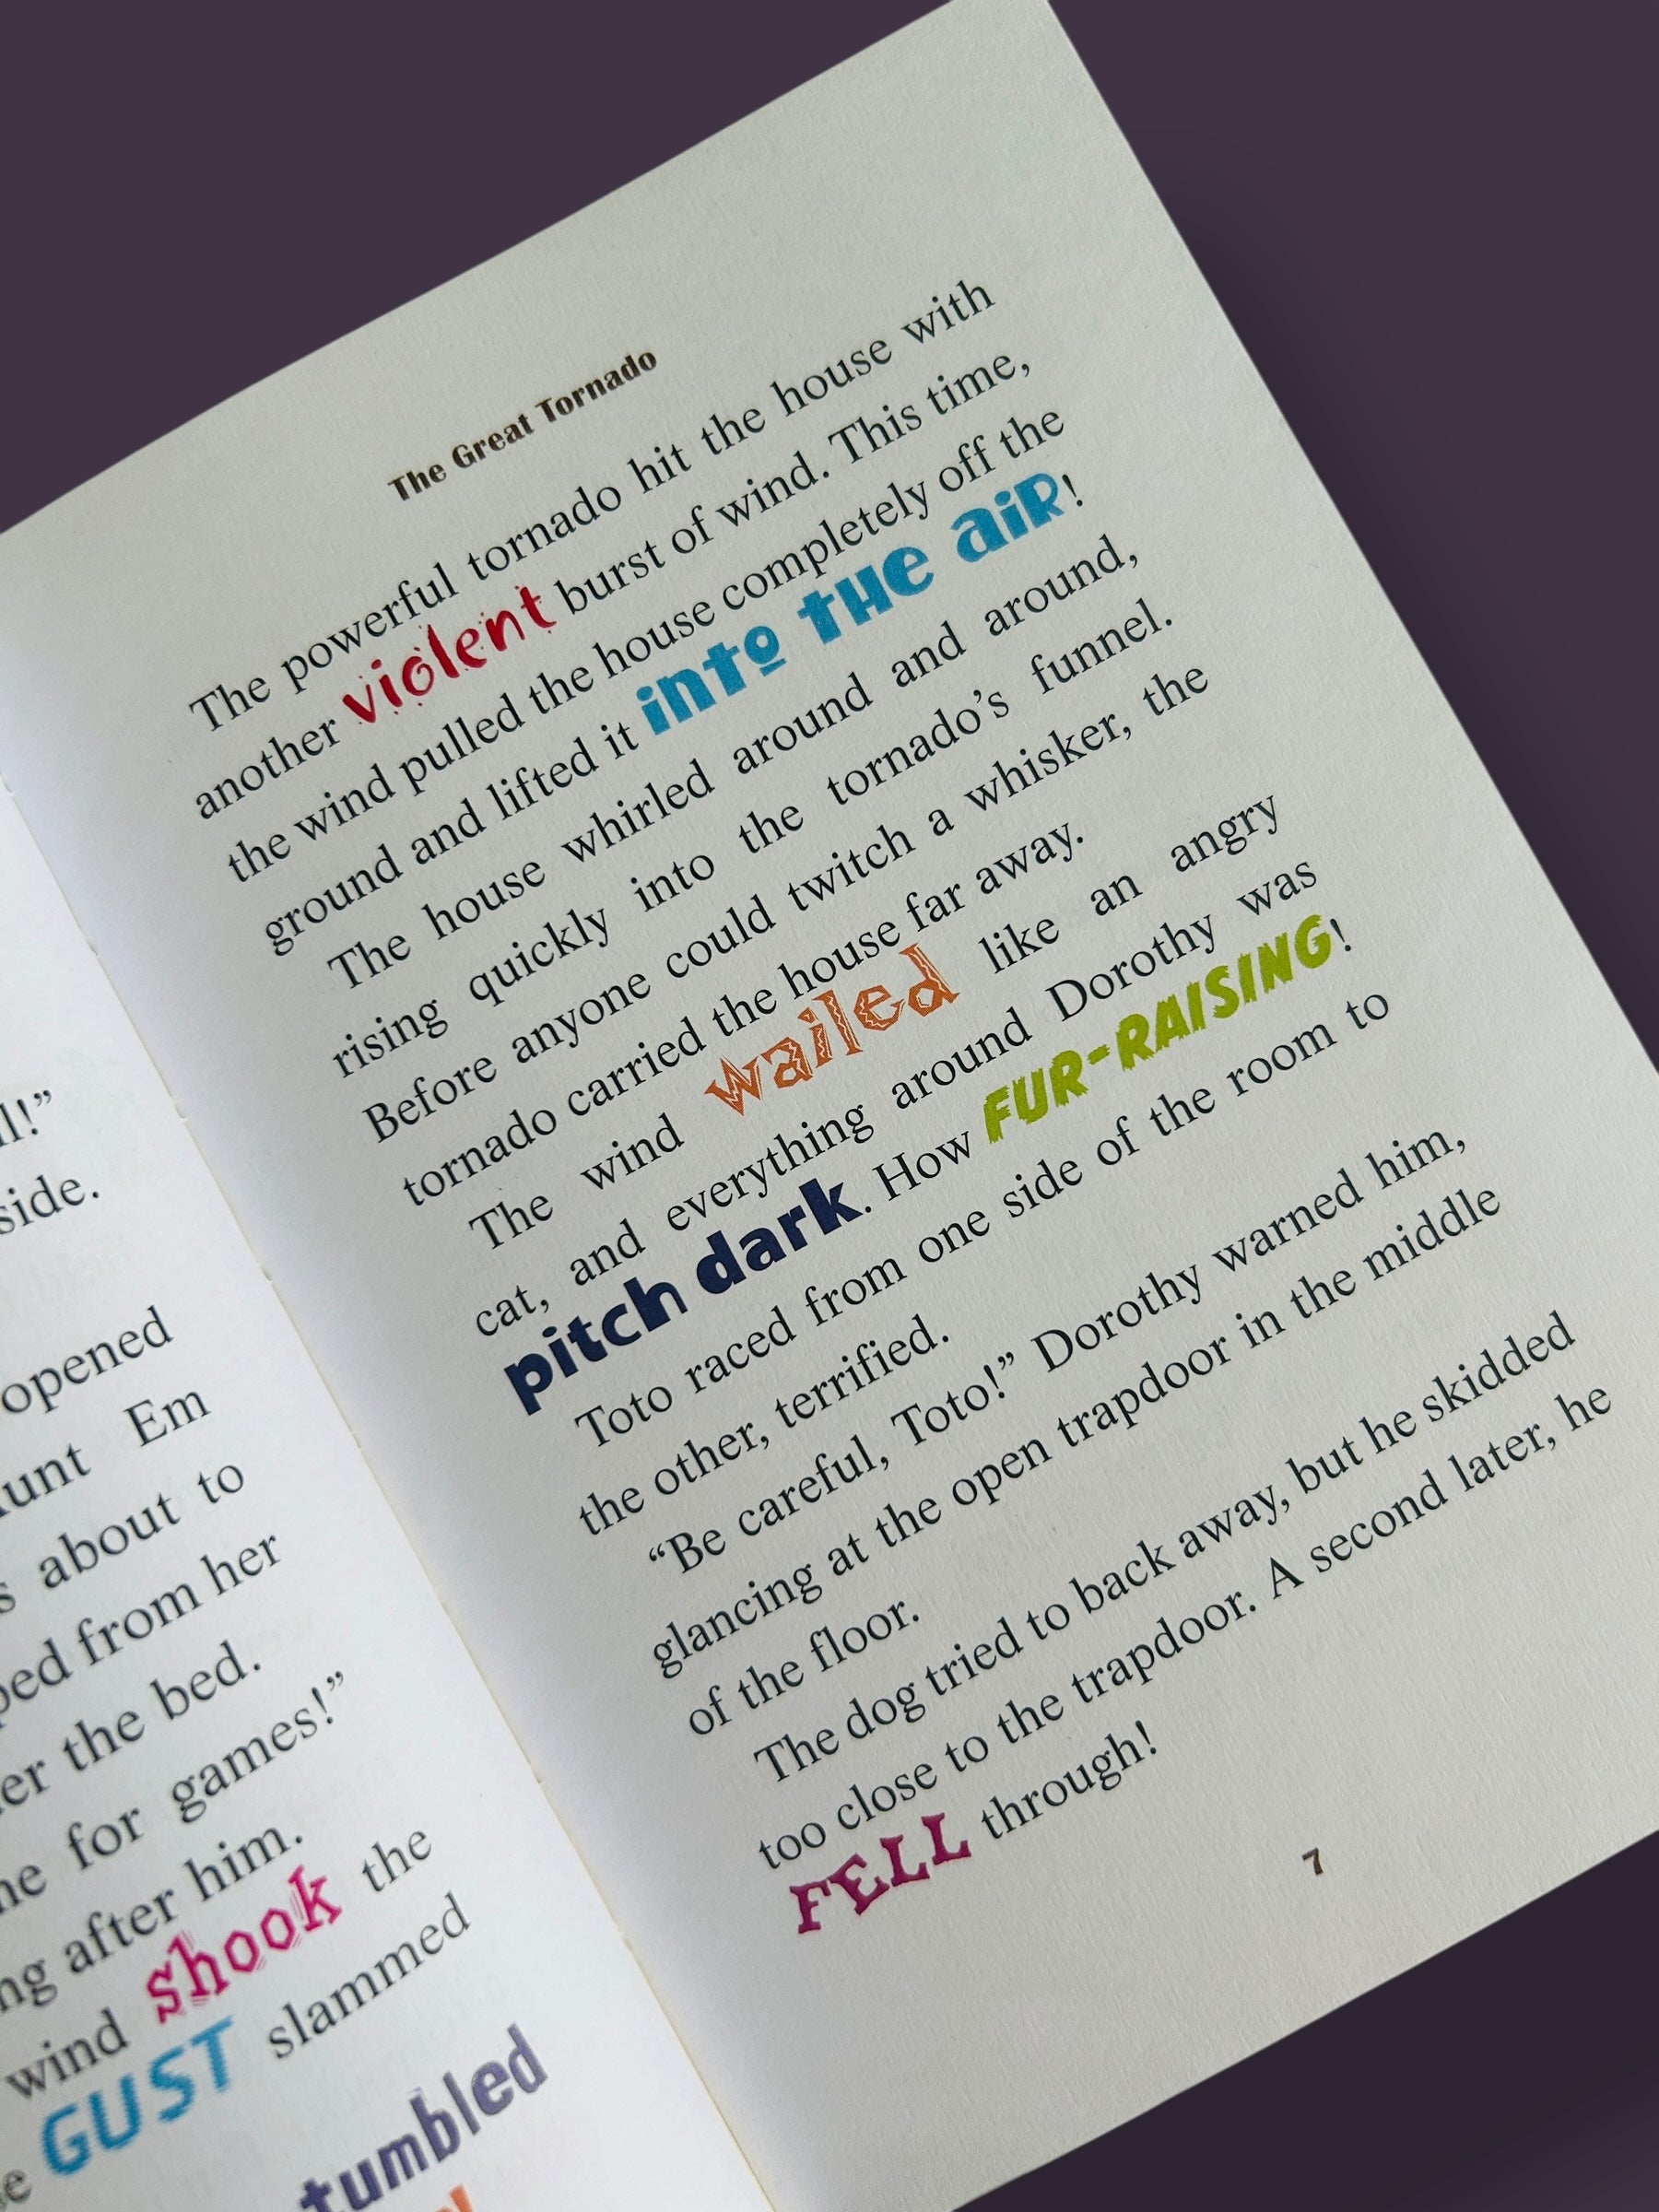 side.
opened
Em
about to
from her
the bed.
for games!”
after him.
wind shook the
GUST slammed
tumbled
The Great Tornado
The powerful tornado hit the house with
another violent burst of wind. This time,
the wind pulled the house completely off the
ground and lifted it into THE aiR!
The house whirled around and around,
rising quickly into the tornado’s funnel.
Before anyone could twitch a whisker, the
tornado carried the house far away.
The wind wailed like an angry
cat, and everything around Dorothy was
pitch dark. How FUR-RAISING!
Toto raced from one side of the room to
the other, terrified.
“Be careful, Toto!” Dorothy warned him,
glancing at the open trapdoor in the middle
of the floor.
The dog tried to back away, but he skidded
too close to the trapdoor. A second later, he
FELL through!
7